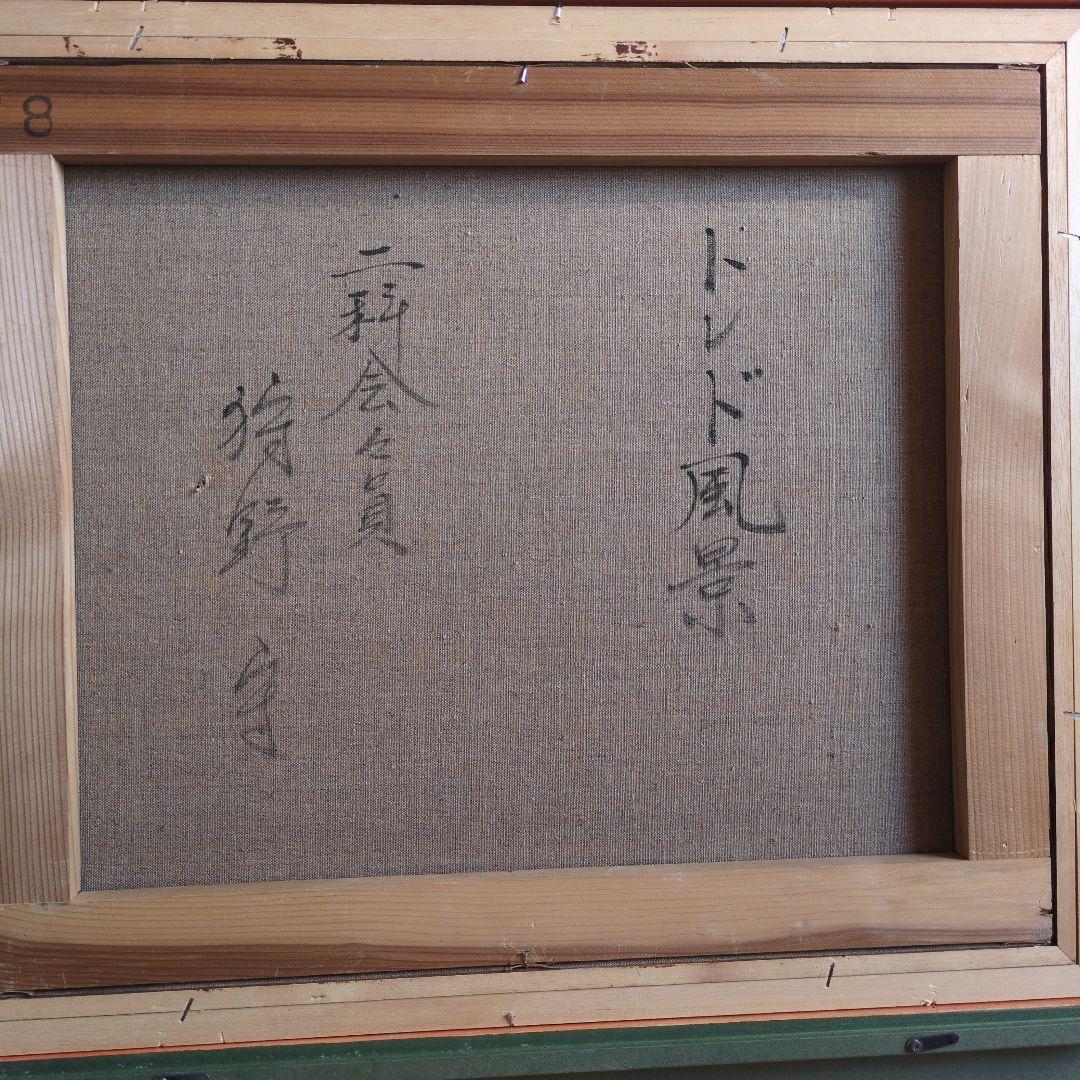 トレド風景
二科会会員
狩野守
8